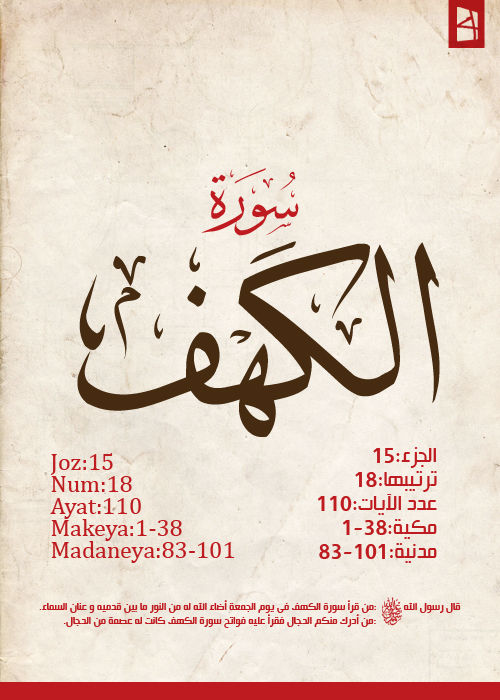 سُورَة
الكَهف
Joz:15
Num:18
Ayat:110
Makeya:1-38
Madaneya:83-101
الجزء:15
ترتيبها:18
عدد الآيات:110
مكية:38-1
مدنية:101-83
قال رسول الله ﷺ :من قرأ سورة الكهف فى يوم الجمعة أضاء الله له من النور ما بين قدميه و عنان السماء.
:من أدرك منكم الدجال فقرأ عليه فواتح سورة الكهف كانت له عصمة من الدجال.